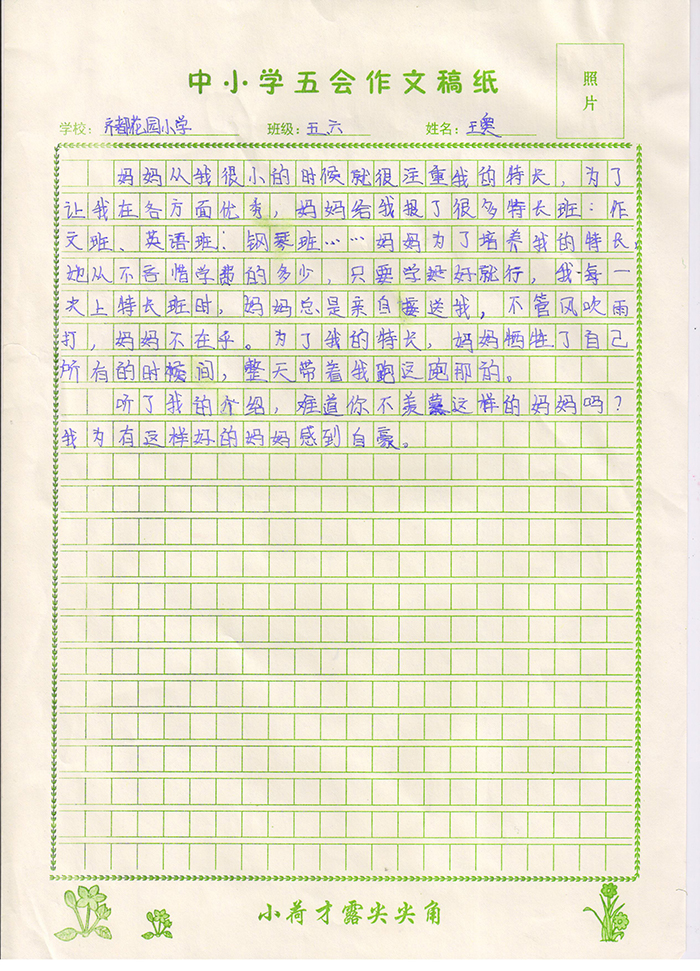 中小学五会作文稿纸
照片
学校：齐都花园小学 班级：五六 姓名：王奥
妈妈从我很小的时候就很注重我的特长，为了
让我在各方面优秀，妈妈给我报了很多特长班：作
文班、英语班：钢琴班……妈妈为了培养我的特长，
她从不吝惜学费的多少，只要学好就行，我每一
次上特长班时，妈妈总是亲自接送我，不管风吹雨
打，妈妈不在乎。为了我的特长，妈妈牺牲了自己
所有的时间，整天带着我跑这跑那的。
听了我的介绍，难道你不羡慕这样的妈妈吗？
我为有这样好的妈妈感到自豪。
小荷才露尖尖角